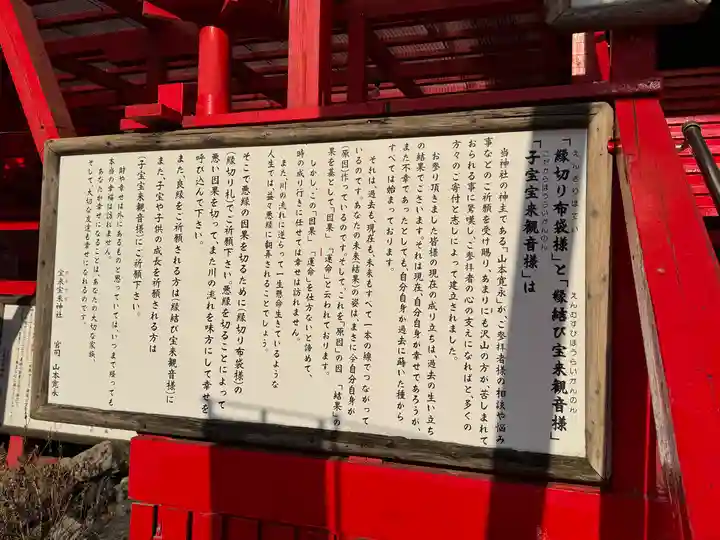 「縁切り布袋様」と「縁結び宝来観音様」
えんきりほてい
えんむすびほうらいかんのん
「子宝宝来観音様」は
こだからほうらいかんのん
当神社の神主である「山本寛永」が、ご参拝者様の相談や悩み
事などのご祈願を受け賜り、あまりにも沢山の方が、苦しまれて
おられる事に驚嘆し、ご参拝者の心の支えになればと、多くの
方々のご寄付と志しによって建立されました。
お参り頂きました皆様の現在の成り立ちは、過去の生い立ち
の結果でございます。それは現在、自分自身が幸せであろうが、
また不幸であったとしても、自分自身が過去に蒔いた種から
すべては始まっております。
それは、過去も、現在も、未来もすべて一本の線でつながって
いるのです。あなたの未来(結果)の姿は、まさに、今自分自身が
(原因)作っているのです。そして、これを「原因」の因 「結果」の
果を基として「因果」 「運命」と云われております。
しかし、この「因果」 「運命」を仕方ないと諦めて、
時の成り行きに任せては幸せは訪れません。
また、川の流れに逆らって一生懸命生きているような
人生では、益々悪縁に翻弄されることでしょう。
そこで悪縁の因果を切るために(縁切り布袋様)の
(縁切り札)でご祈願下さい。悪縁を切ることによって
悪い因果を切って、また、川の流れを味方にして幸せを
呼び込んで下さい。
また、良縁をご祈願される方は(縁結び宝来観音様)に
また、子宝や子供の成長を祈願される方は
(子宝宝来観音様)にご祈願下さい。
財や幸せは外にあるものと思っていては、いつまで経っても
本当の幸福は訪れません。
あなたが幸せになることは、あなたの大切な家族、
そして、大切な友達も幸せになれるのです。
宝来宝来神社
宮司 山本寛永